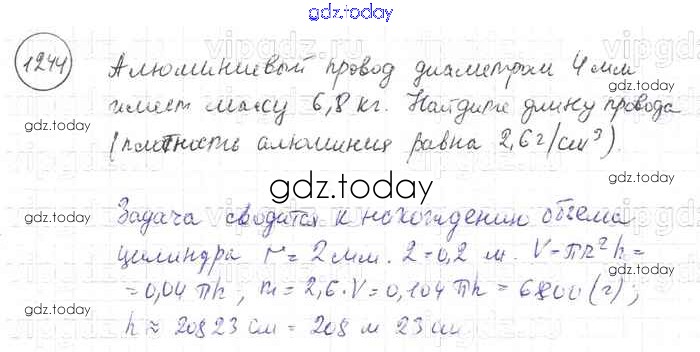 gdz.today
1244 Алюминиевый провод диаметром 4 мм
имеет массу 6,8 кг. Найдите длину провода
gdz.today
gdz.today
(плотность алюминия равна 2,6 г/см³).
gdz.today
Задача сводится к нахождению объема
цилиндра r = 2 мм. 2 = 0,2 м. V - πR²h =
= 0,04 πh; m = 2,6 · V = 0,104 πh = 6800 (г);
gdz.today
gdz.today
h ≈ 20823 см = 208 м 23 см
gdz.today